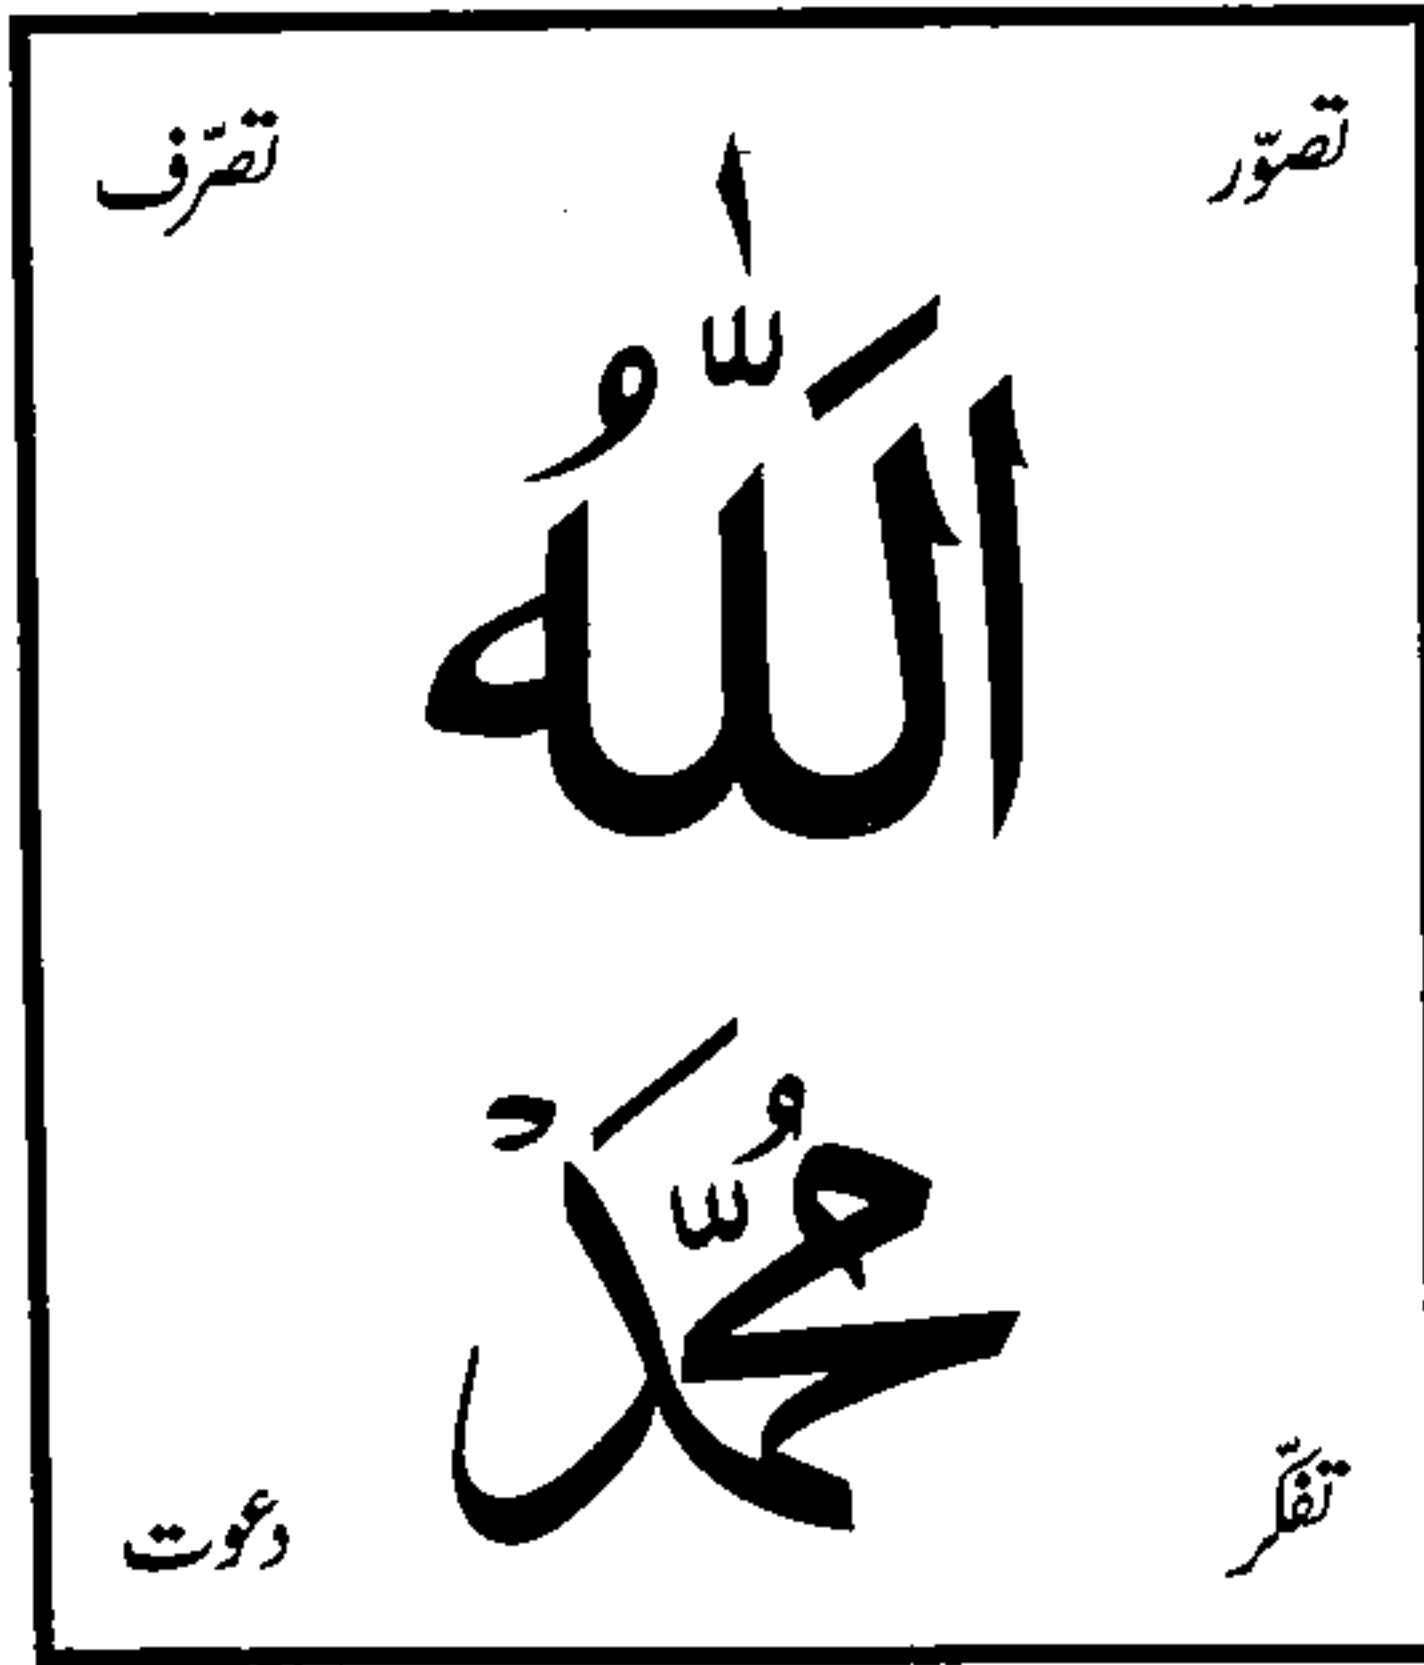 تصوّر
تصرّف
اللّٰهُ
مُحَمَّدْ
تفکّر
دعوت